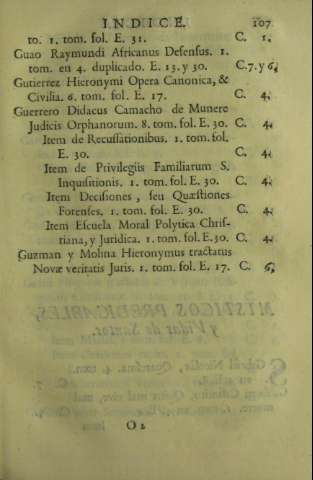 INDICE. 107
to. 1. tom. fol. E. 31. C. 1.
Guao Raymundi Africanus Defensus. 1.
tom. en 4. duplicado. E. 13. y 30. C.7. y 6.
Gutierrez Hieronymi Opera Canonica, &
Civilia. 6. tom. fol. E. 17. C. 4.
Guerrero Didacus Camacho de Munere
Judicis Orphanorum. 8. tom. fol. E. 30. C. 4.
Item de Recussationibus. 1. tom. fol.
E. 30. C. 4.
Item de Privilegiis Familiarum S.
Inquisitionis. 1. tom. fol. E. 30. C. 4.
Item Decisiones, seu Quæstiones
Forenses. 1. tom. fol. E. 30. C. 4.
Item Escuela Moral Polytica Chris-
tiana, y Juridica. 1. tom. fol. E. 30. C. 4.
Guzman y Molina Hieronymus tractatus
Novæ veritatis Juris. 1. tom. fol. E. 17. C. 6.
MYSTICOS PREDICABLES,
y Vidas de Santos.
O 2